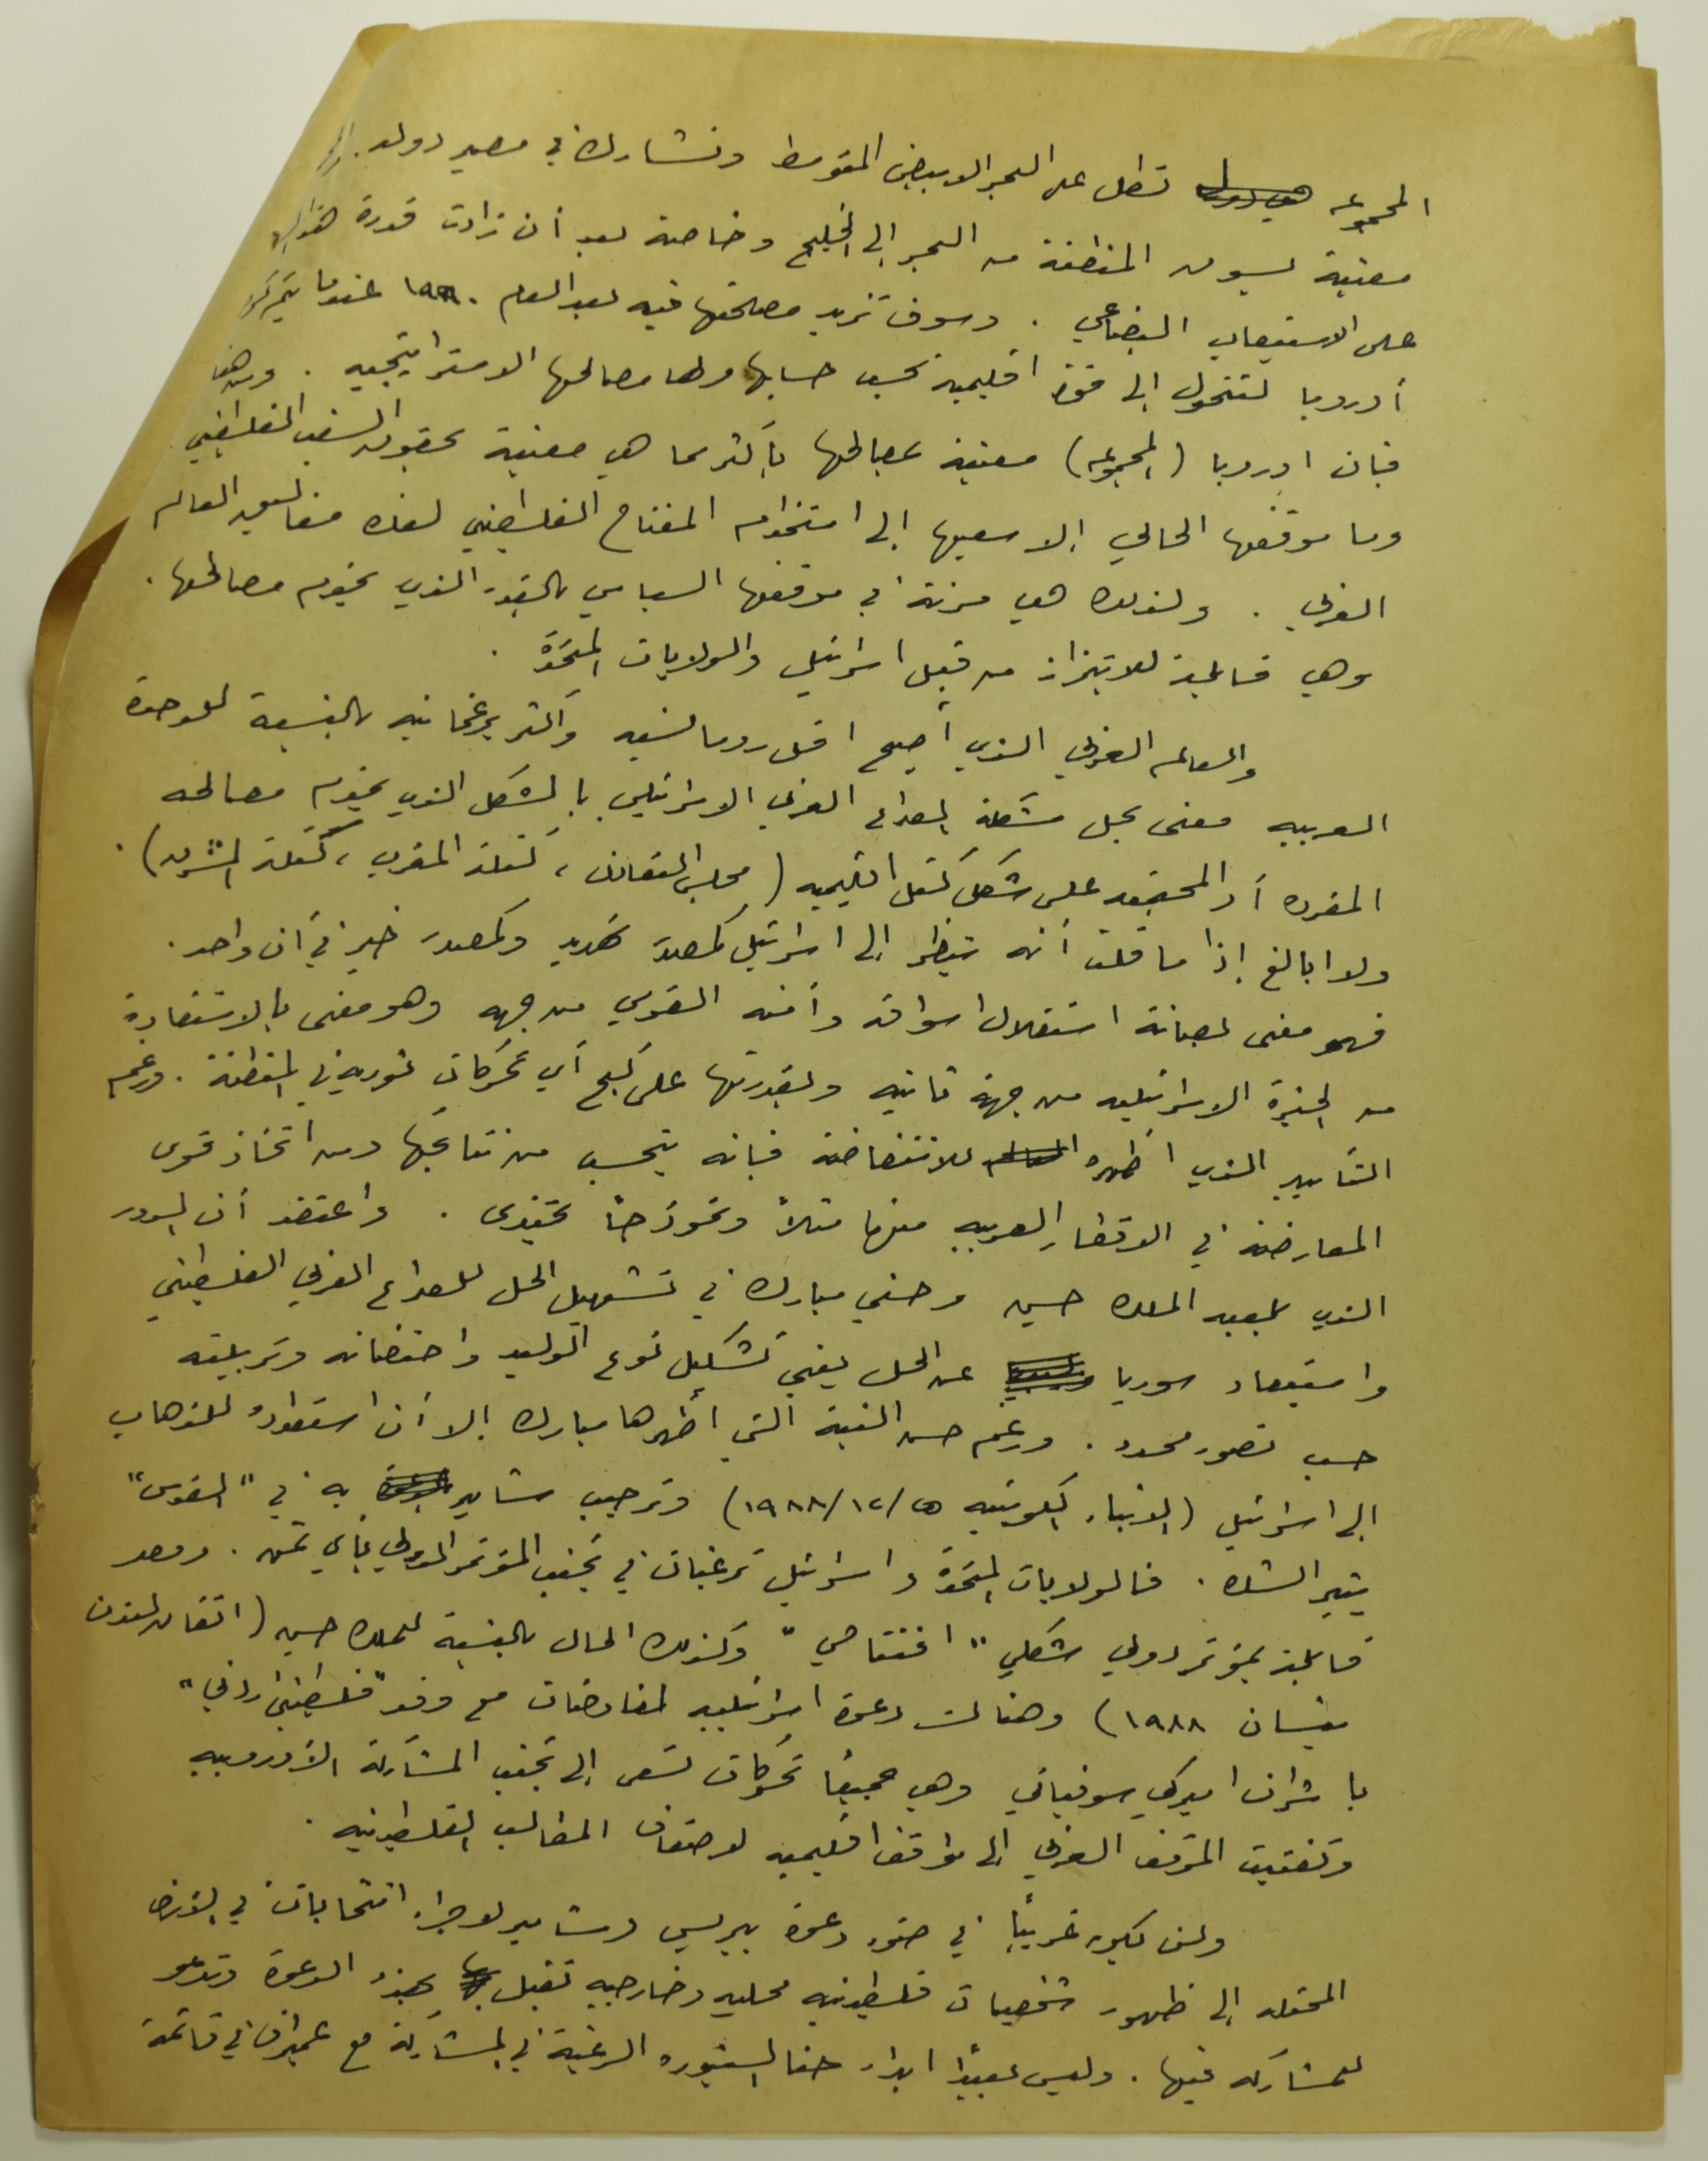 المجموعه تطل على البحر الابيض المتوسط وتشارك في مصير دوله.
معنية بسوق المنطقة من البحر إلى الخليج وخاصة بعد أن زادت قدرة هذا
على الاستيعاب البضاعي . وسوف تزيد مصلحتها فيه بعد العام ١٩٩٠ عندما
أوروبا لتتحول إلى قوة اقليمية تحسب حسابها ولها مصالحها الاستراتيجيه . ومن هنا
فان اوروبا (المجموعه) معنية بمصالحها بأكثر مما هي معنية بحقوق الشعب الفلسطيني
وما موقفها الحالي إلا سعيها إلى استخدام المفتاح الفلسطيني لفك مغاليق العالم
العربي . ولذلك هي مرنة في موقفها السياسي بالقدر الذي يخدم مصالحها .
وهي قابلة للابتزاز من قبل اسرائيل والولايات المتحدة .
والعالم العربي الذي أصبح اقل رومانسيه وأكثر برغماتيه بالنسبة للوحدة
العربيه معنى بحل مشكلة الصراع العربي الاسرائيلي بالشكل الذي يخدم مصالحه
المفرده أو المجتمعه على شكل كتل اقليميه (مجلس التعاون ، كتلة المغرب ، كتلة المشرق) .
ولا ابالغ إذا ما قلت أنه ينظر إلى اسرائيل كمصدر تهديد وكمصدر خير في أن واحد .
فهو معنى بصيانة استقلال اسواقه وأمنه القومي من جهه وهو معنى بالاستفادة
من الخبرة الاسرائيليه من جهة ثانيه وبقدرتها على كبح أي تحركات ثوريه في المنطقة . ورغم
التأييد الذي اظهره للانتفاضة فانه يتحسب من نتائجها ومن اتخاذ قوى
المعارضة في الاقطار العربيه منها مثلاً ونموذجاً يحتذى . واعتقد أن الدور
الذي يلعبه الملك حسين وحسني مبارك في تسهيل الحل للصراع العربي الفلسطيني
واستبعاد سوريا عن الحل يعني تشكيل نوع الوليد واحتضانه وتربيته
حسب تصور محدد . ورغم حسن النية التي أظهرها مبارك إلا أن استعداده للذهاب
إلى اسرائيل (الانباء الكويتيه ١٩٨٨/١٢/٥) وترحيب شامير به في "القدس"
يثير الشك . فالولايات المتحدة واسرائيل ترغبان في تجنب المؤتمر الدولي بأي ثمن . ومصر
قابلة بمؤتمر دولي شكلي "افتتاحي" وكذلك الحال بالنسبة للملك حسين (اتفاق لندن
نيسان ١٩٨٨) وهنالك دعوة اسرائيليه لمفاوضات مع وفد "فلسطيني اردني"
باشراف اميركي سوفياتي وهي جميعاً تحركات تسعى إلى تجنب المشاركة الأوروبيه
وتفتيت الموقف العربي إلى مواقف اقليميه لاضعاف المطالب الفلسطينيه .
ولن يكون غريباً في ضوء دعوة بيريس وشامير لاجراء انتخابات في الارض
المحتله إلى ظهور شخصيات فلسطينيه محليه وخارجيه تقبل بهذه الدعوة وتدعو
للمشاركه فيها . وليس بعيداً ابداء حنا السنيوره الرغبة في المشاركة مع عميراف في قائمة